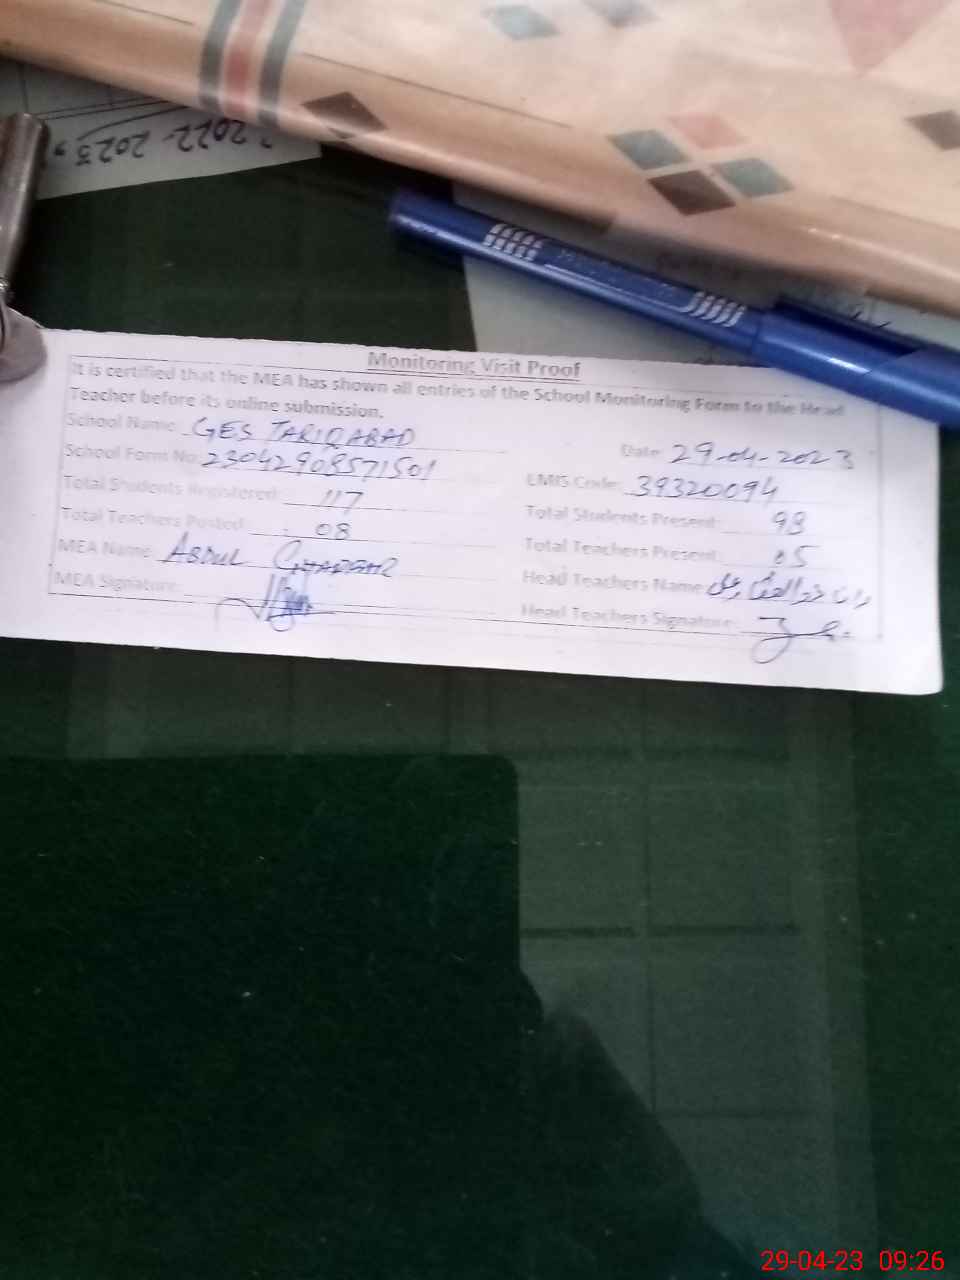 2022-2023,
Monitoring Visit Proof
It is certified that the MEA has shown all entries of the School Monitoring Form to the Head
Teacher before its online submission.
School Name: GES TARIQABAD
Date: 29-04-2023
School Form No: 23042908571501
EMIS Code: 39320094
Total Students Registered: 117
Total Students Present: 98
Total Teachers Posted: 08
Total Teachers Present: 05
MEA Name: ABDUL GHAFFAR
Head Teachers Name:
MEA Signature:
Head Teachers Signature:
29-04-23 09:26